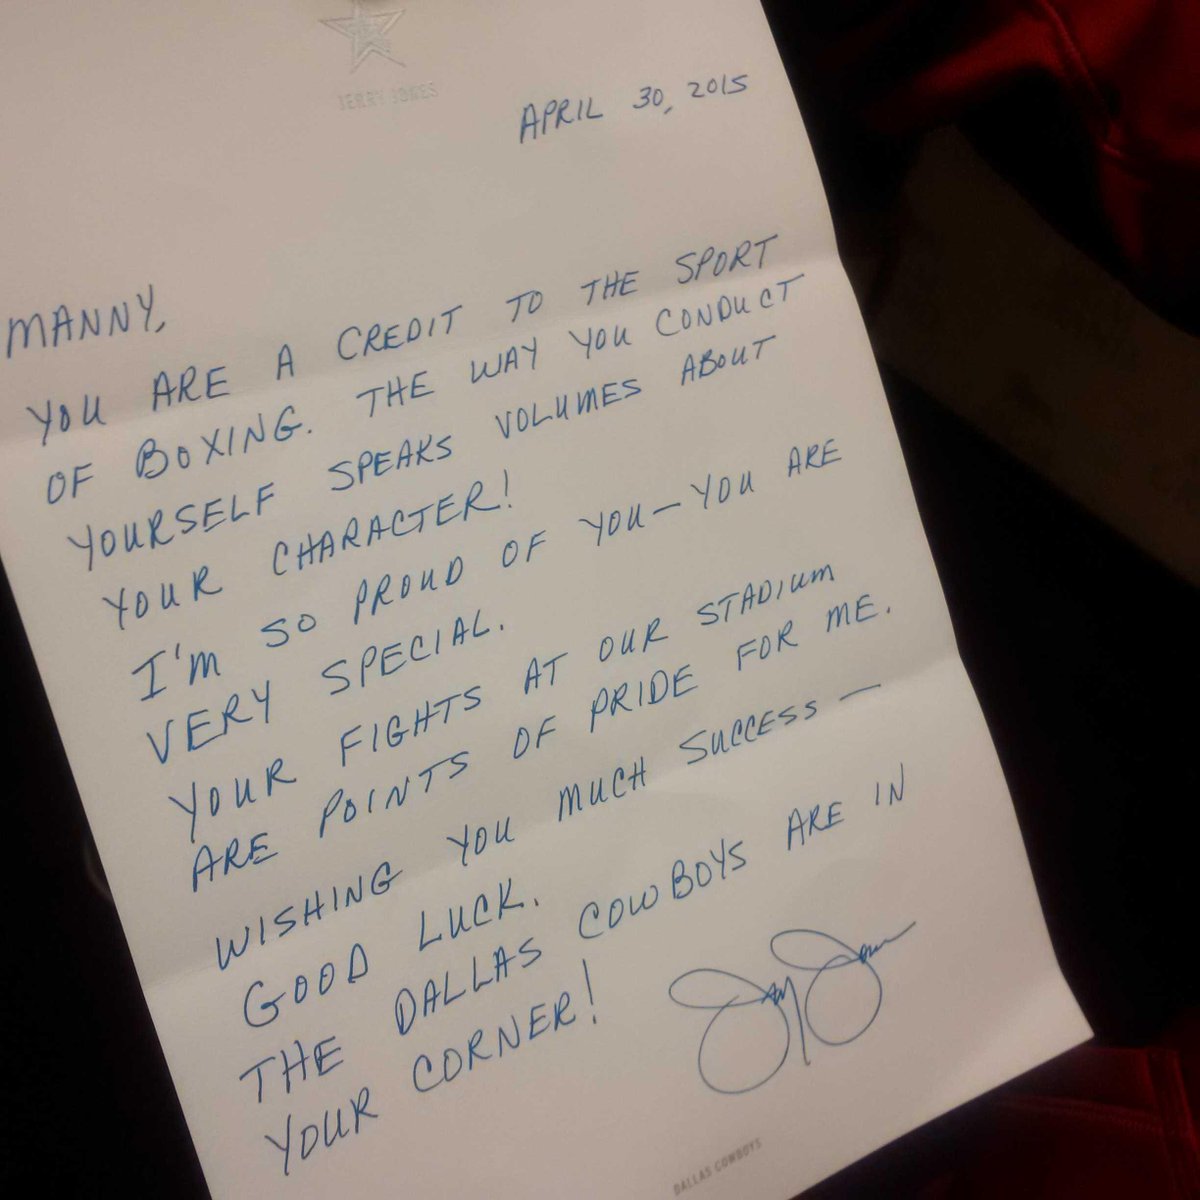 JERRY JONES
APRIL 30, 2015
MANNY,
YOU ARE A CREDIT TO THE SPORT
OF BOXING. THE WAY YOU CONDUCT
YOURSELF SPEAKS VOLUMES ABOUT
YOUR CHARACTER!
I'M SO PROUD OF YOU — YOU ARE
VERY SPECIAL.
YOUR FIGHTS AT OUR STADIUM
ARE POINTS OF PRIDE FOR ME.
WISHING YOU MUCH SUCCESS —
GOOD LUCK.
THE DALLAS COWBOYS ARE IN
YOUR CORNER!
Jerry Jones
DALLAS COWBOYS